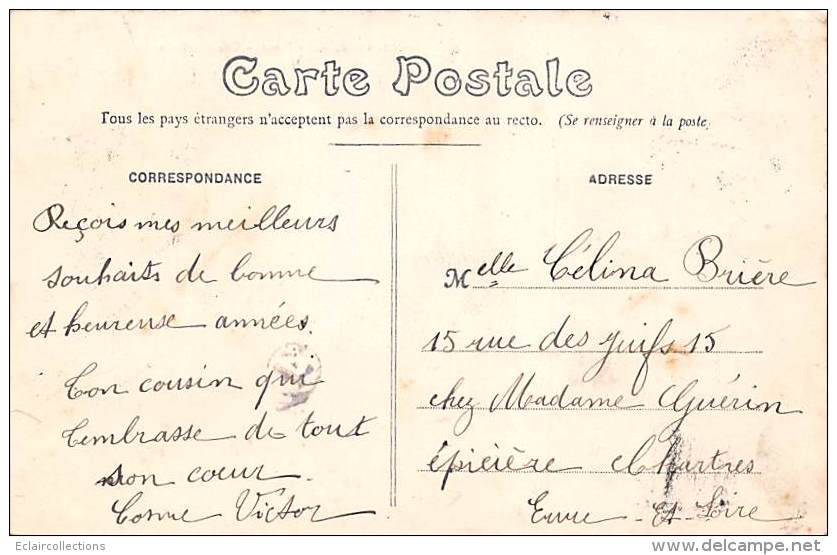 Carte Postale
Tous les pays étrangers n'acceptent pas la correspondance au recto. (Se renseigner à la poste)
CORRESPONDANCE
Reçois mes meilleurs
souhaits de bonne
et heureuse années.
Ton cousin qui
t'embrasse de tout
son coeur.
Victor
ADRESSE
Melle Célina Brière
15 rue des Juifs 15
chez Madame Guérin
épicière Chartres
Eure-et-Loire
Eclaircollections
delcampe.net